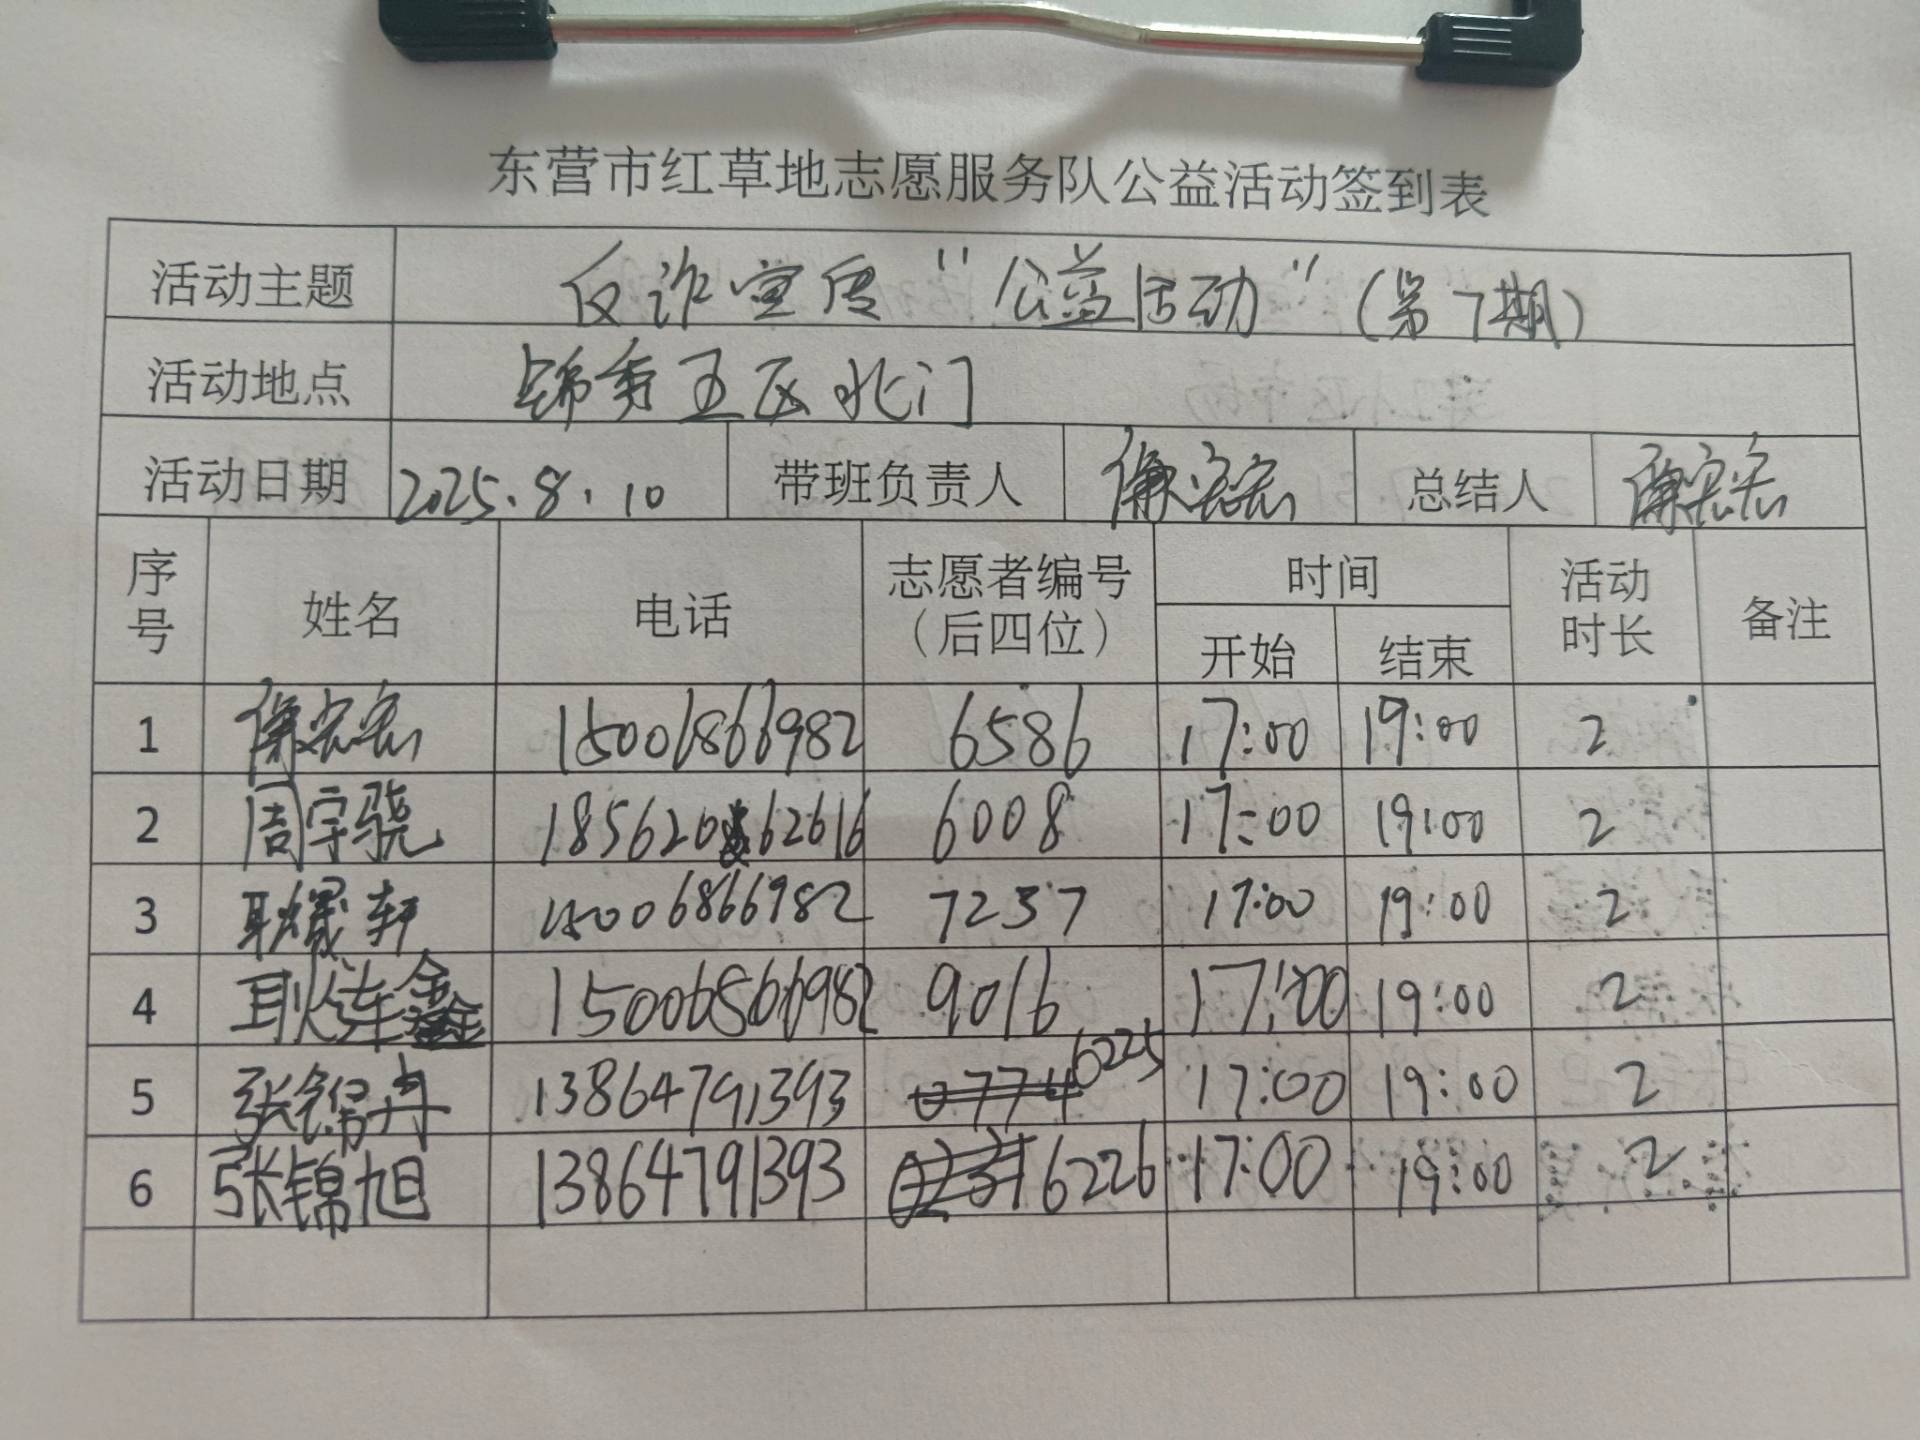 东营市红草地志愿服务队公益活动签到表
活动主题 反诈宣传“公益活动”(第7期)
活动地点 锦秀五区北门
活动日期 2025.8.10 带班负责人 总结人
序号 姓名 电话 志愿者编号（后四位） 时间 开始 结束 活动时长 备注
1 15006866982 6586 17:00 19:00 2
2 周宇骁 18562062616 6008 17:00 19:00 2
3 耿 轩 15006866982 7237 17:00 19:00 2
4 耿 鑫 15006866982 9016 17:00 19:00 2
5 张锦丹 13864791393 6225 17:00 19:00 2
6 张锦旭 13864791393 6226 17:00 19:00 2